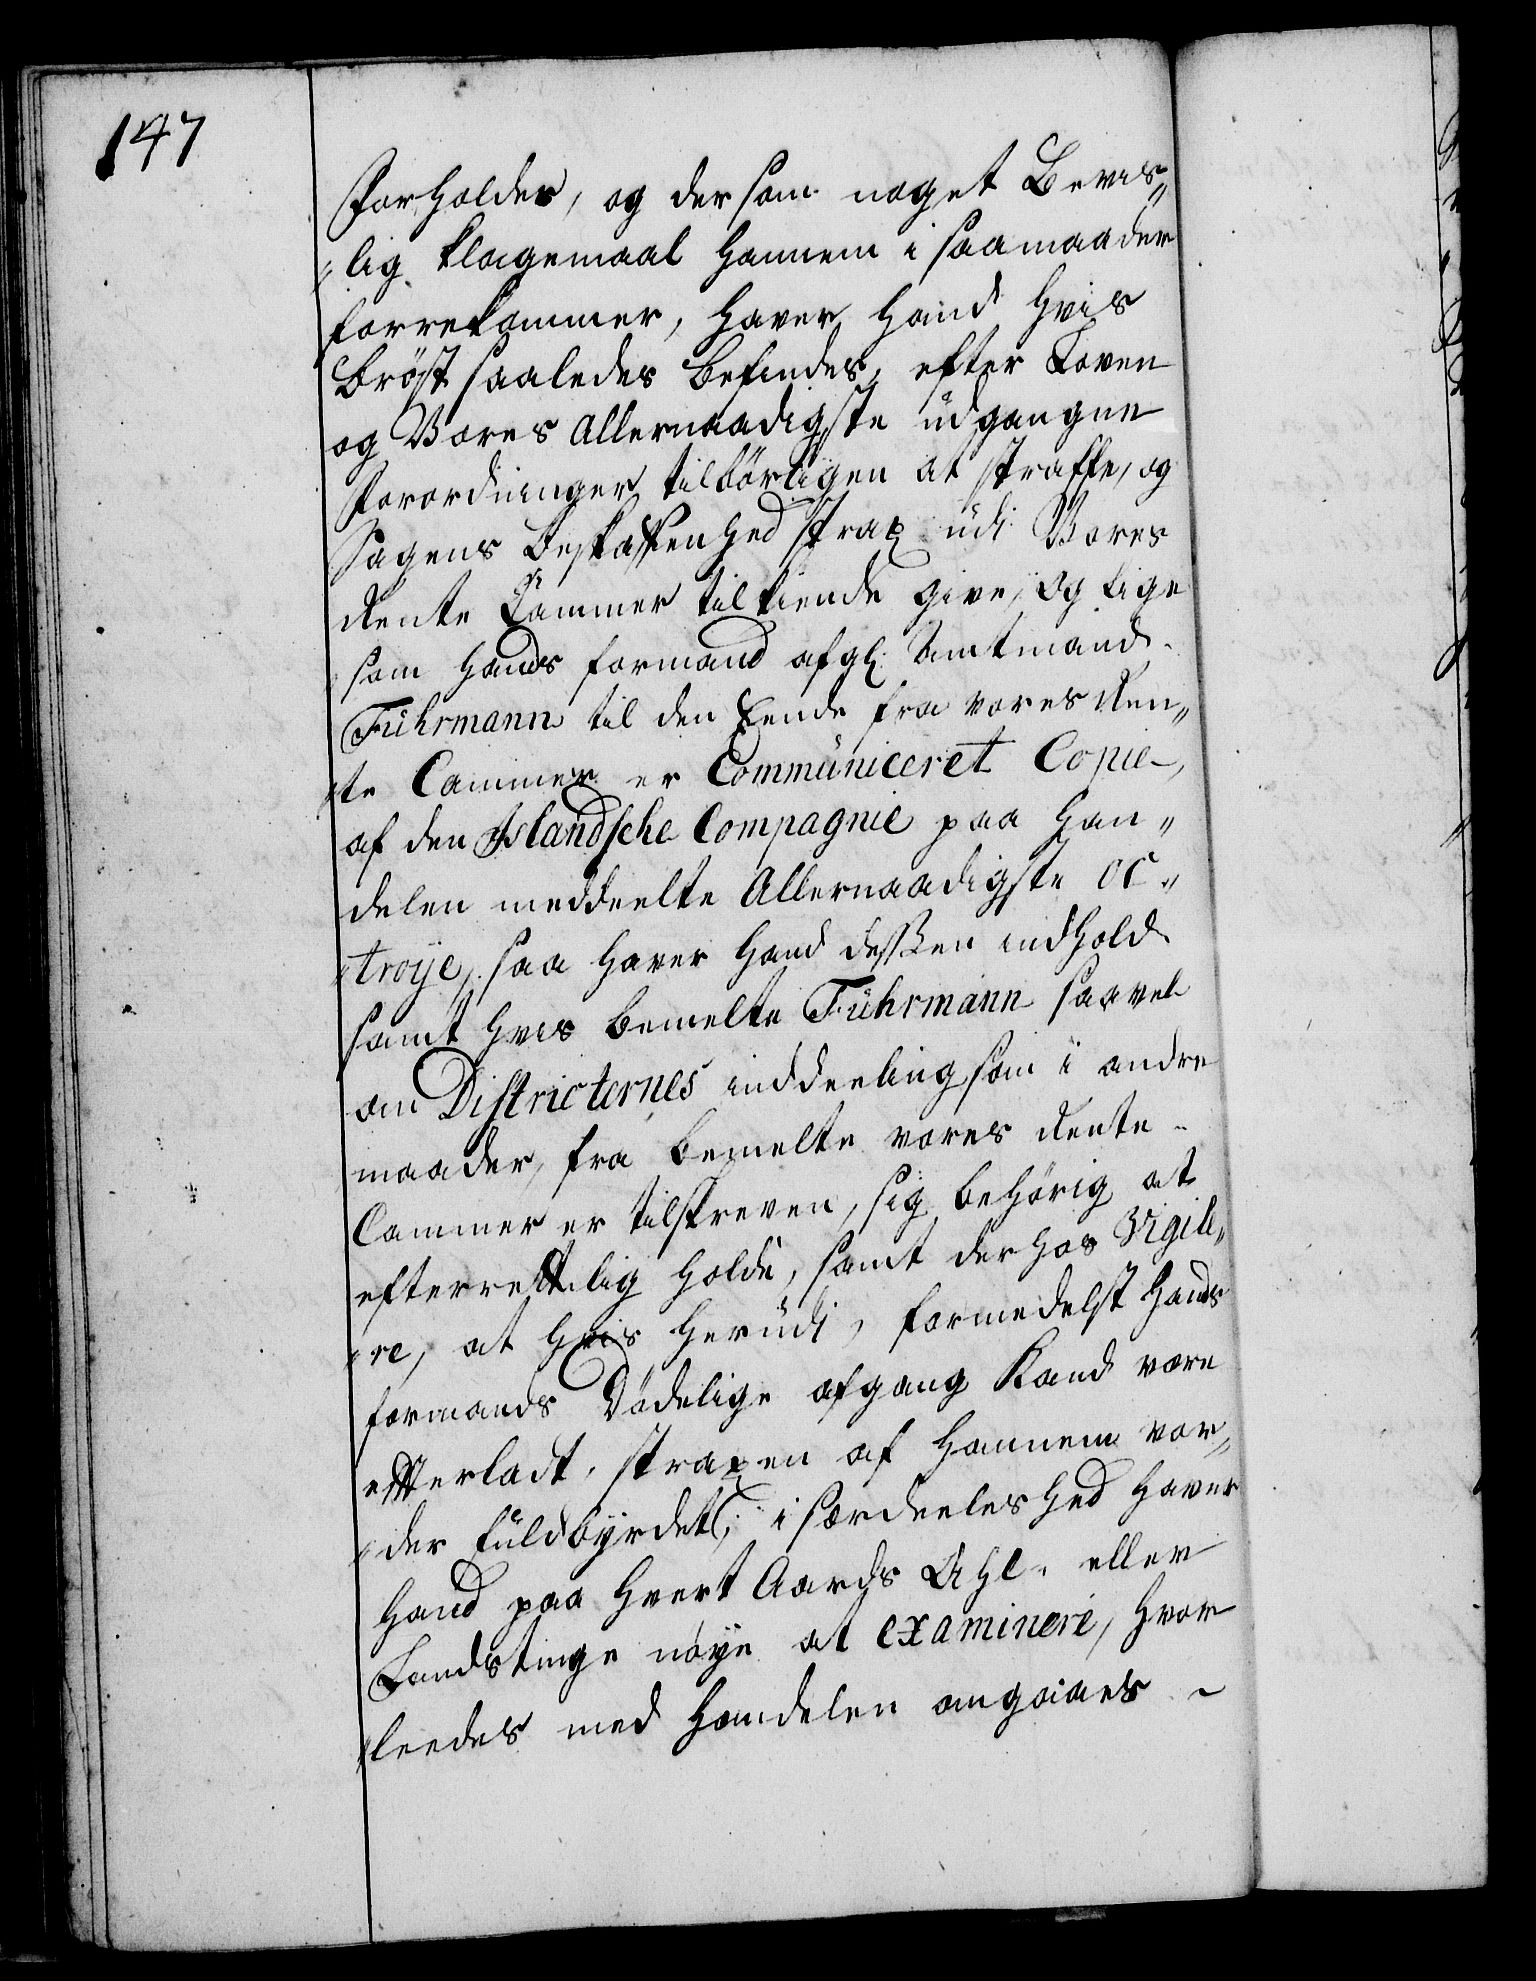 147
Forholder, og dersom noget Bevis„
„lig Klagemaal hannem i saamaader
forrekommer, haver hand hvis
bröst saaledes befindes, efter Loven
og Vores Allernaadigste udgangne
Forordninger tilbörligen at straffe, og
Sagens Beskaffenhed strax udi Vores
Rente Cammer tilkiende give, og lige
som hands formand afg: Amtmand
Fuhrmann til den Eende fra vores Ren„
„te Cammer er Communiceret Copie,
af den Islandsche Compagnie paa Han„
delen meddeelte Allernaadigste oc„
„troye, saa haver hand desßen indhold
samt hvis bemelte Fuhrmann saavel
om Districternes inddeeling som i andre
maader, fra bemelte vores Rente
Cammer er tilskreven, sig behörig at
efterrettelig holde, samt derhos Vigile„
„re, at hvis herudi, formedelst hands
formands Dödelige afgang kand være
efterladt, straxen af hannem vor„
„der fuldbyrdet, i særdeeleshed haver
hand paa hvert Aards Ahl- eller
Landstinge nöye at examinere, hvor
„leedes med handelen omgaaes